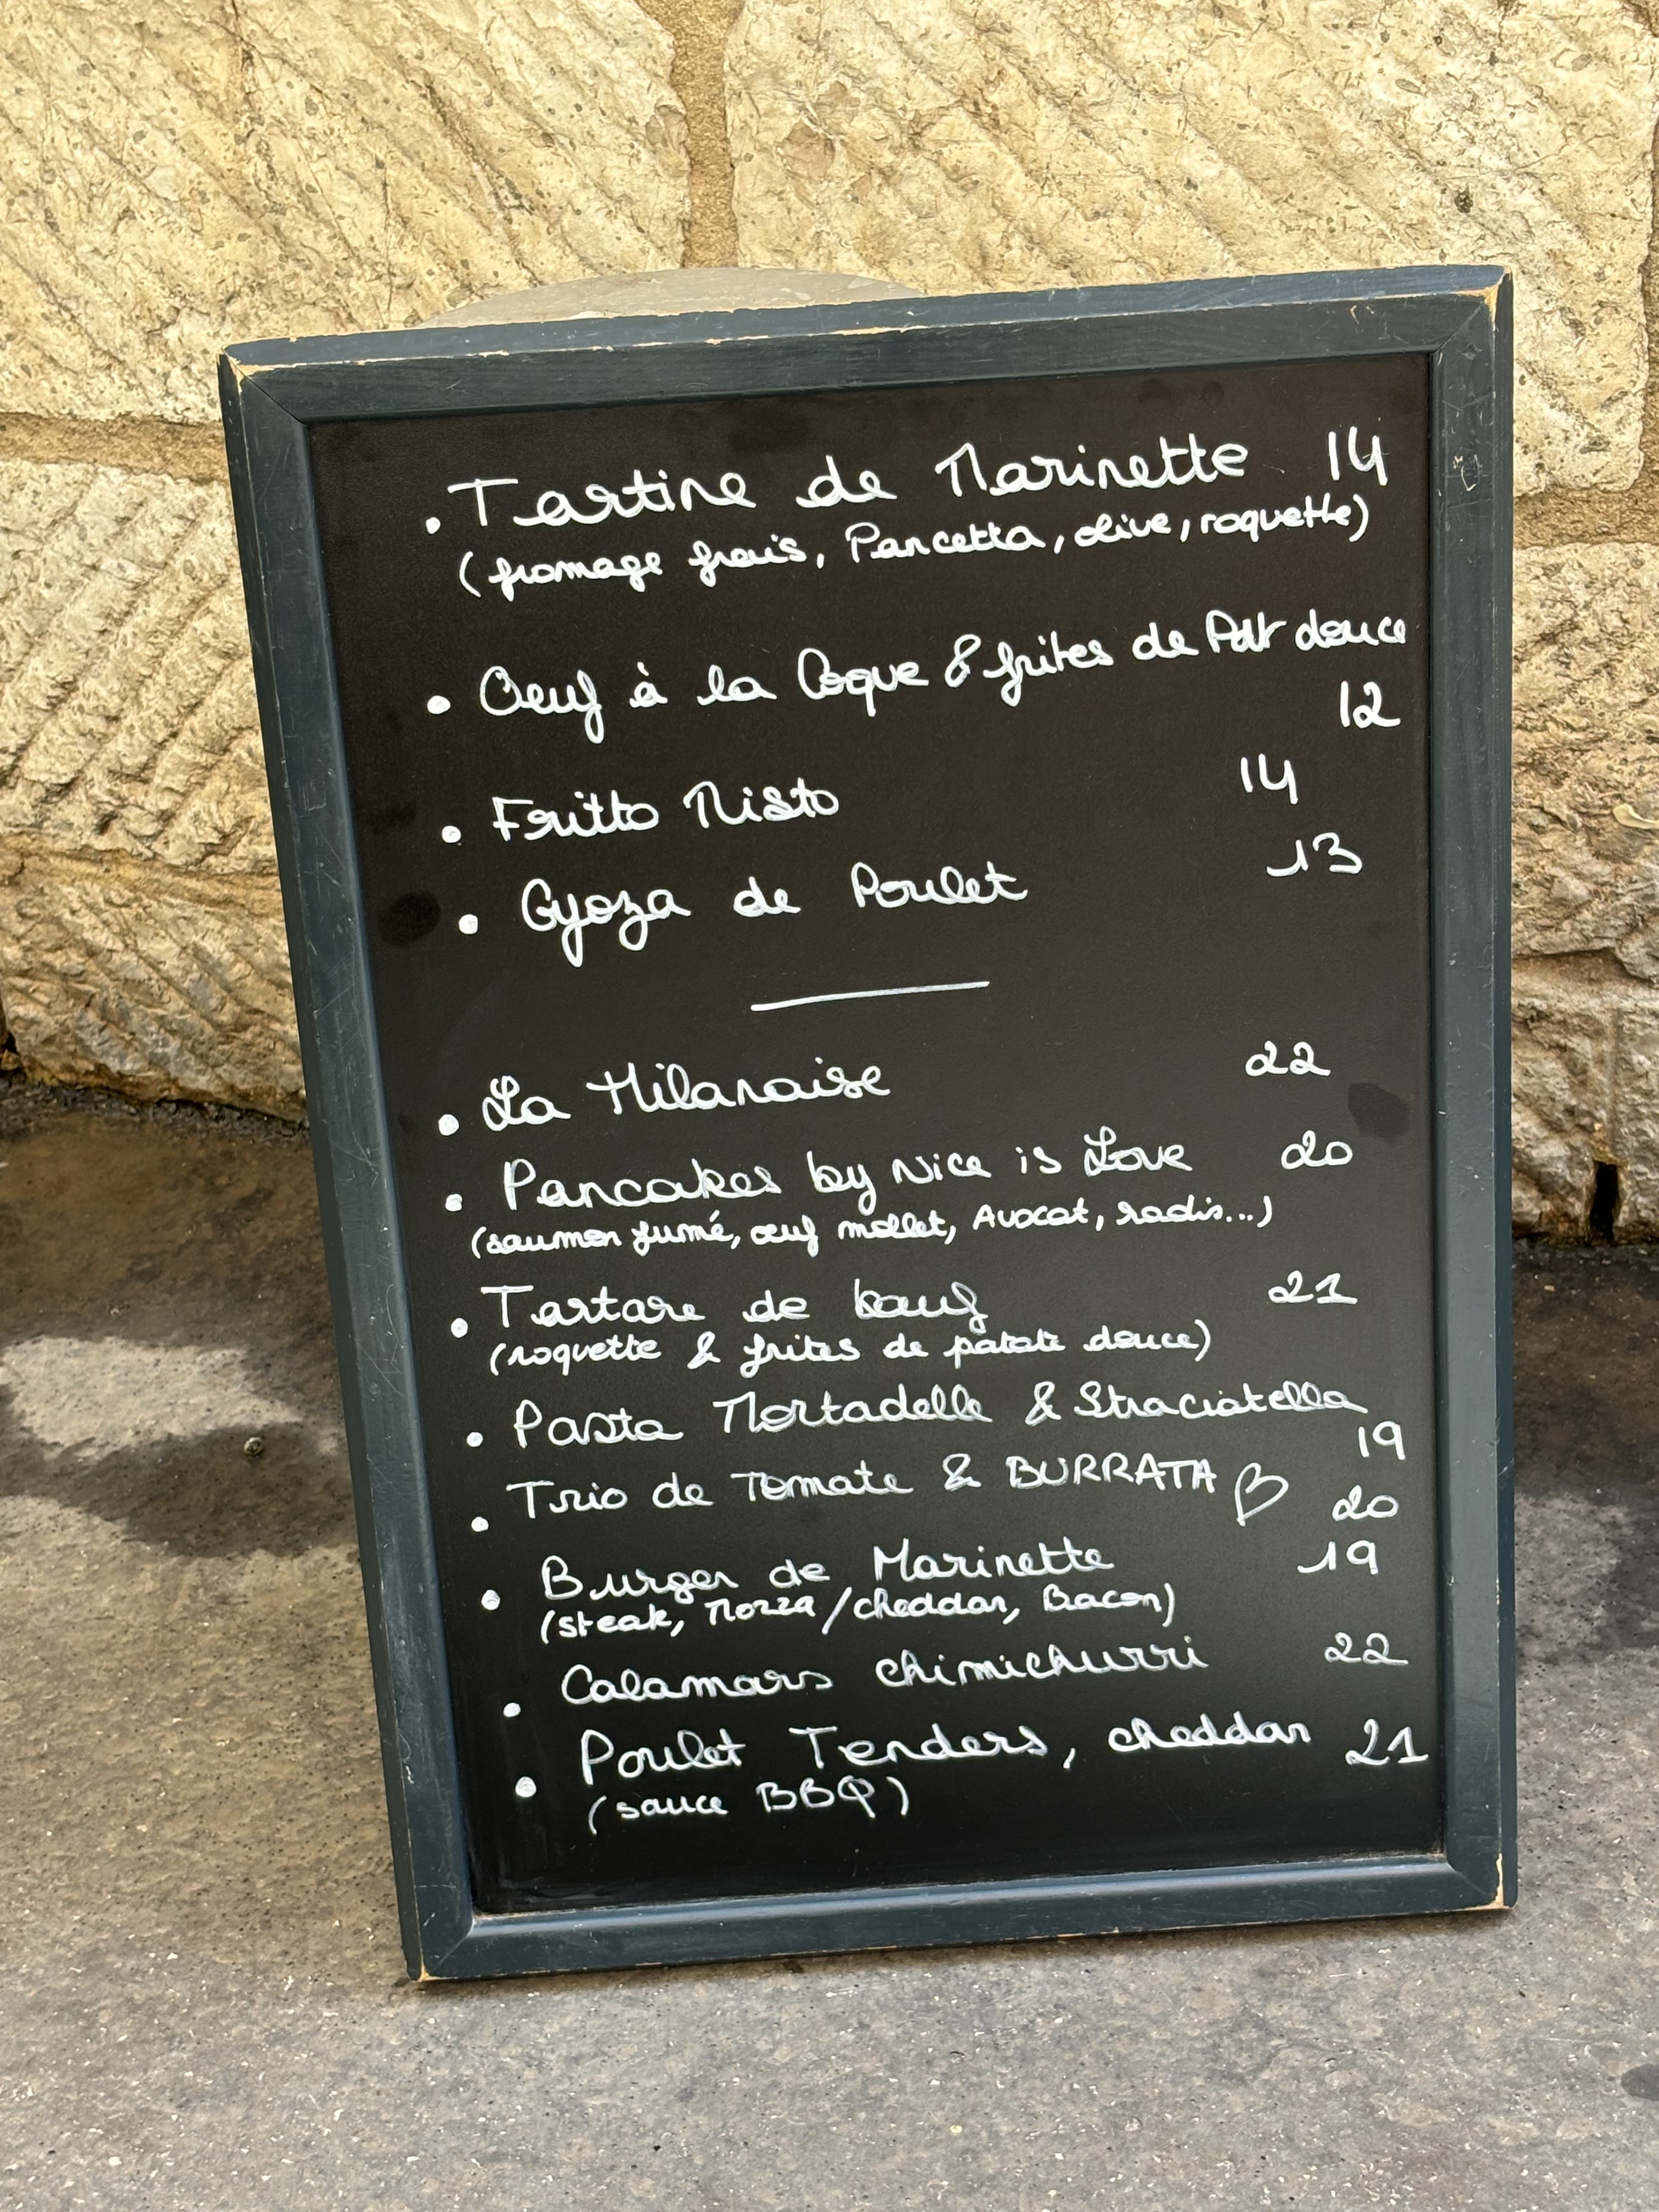 • Tartine de Marinette 14
(fromage frais, Pancetta, olive, roquette)
• Oeuf à la Coque & frites de Pat douce
12
• Fritto Misto 14
• Gyoza de Poulet 13
• La Milanaise 22
• Pancakes by Nice is Love 20
(saumon fumé, œuf mollet, Avocat, radis...)
• Tartare de bœuf 21
(roquette & frites de patate douce)
• Pasta Mortadelle & Straciatella
19
• Trio de Tomate & BURRATA ♡ 20
• Burger de Marinette 19
(steak, Mozza/cheddar, Bacon)
• Calamars chimichurri 22
• Poulet Tenders, cheddar 21
(sauce BBQ)